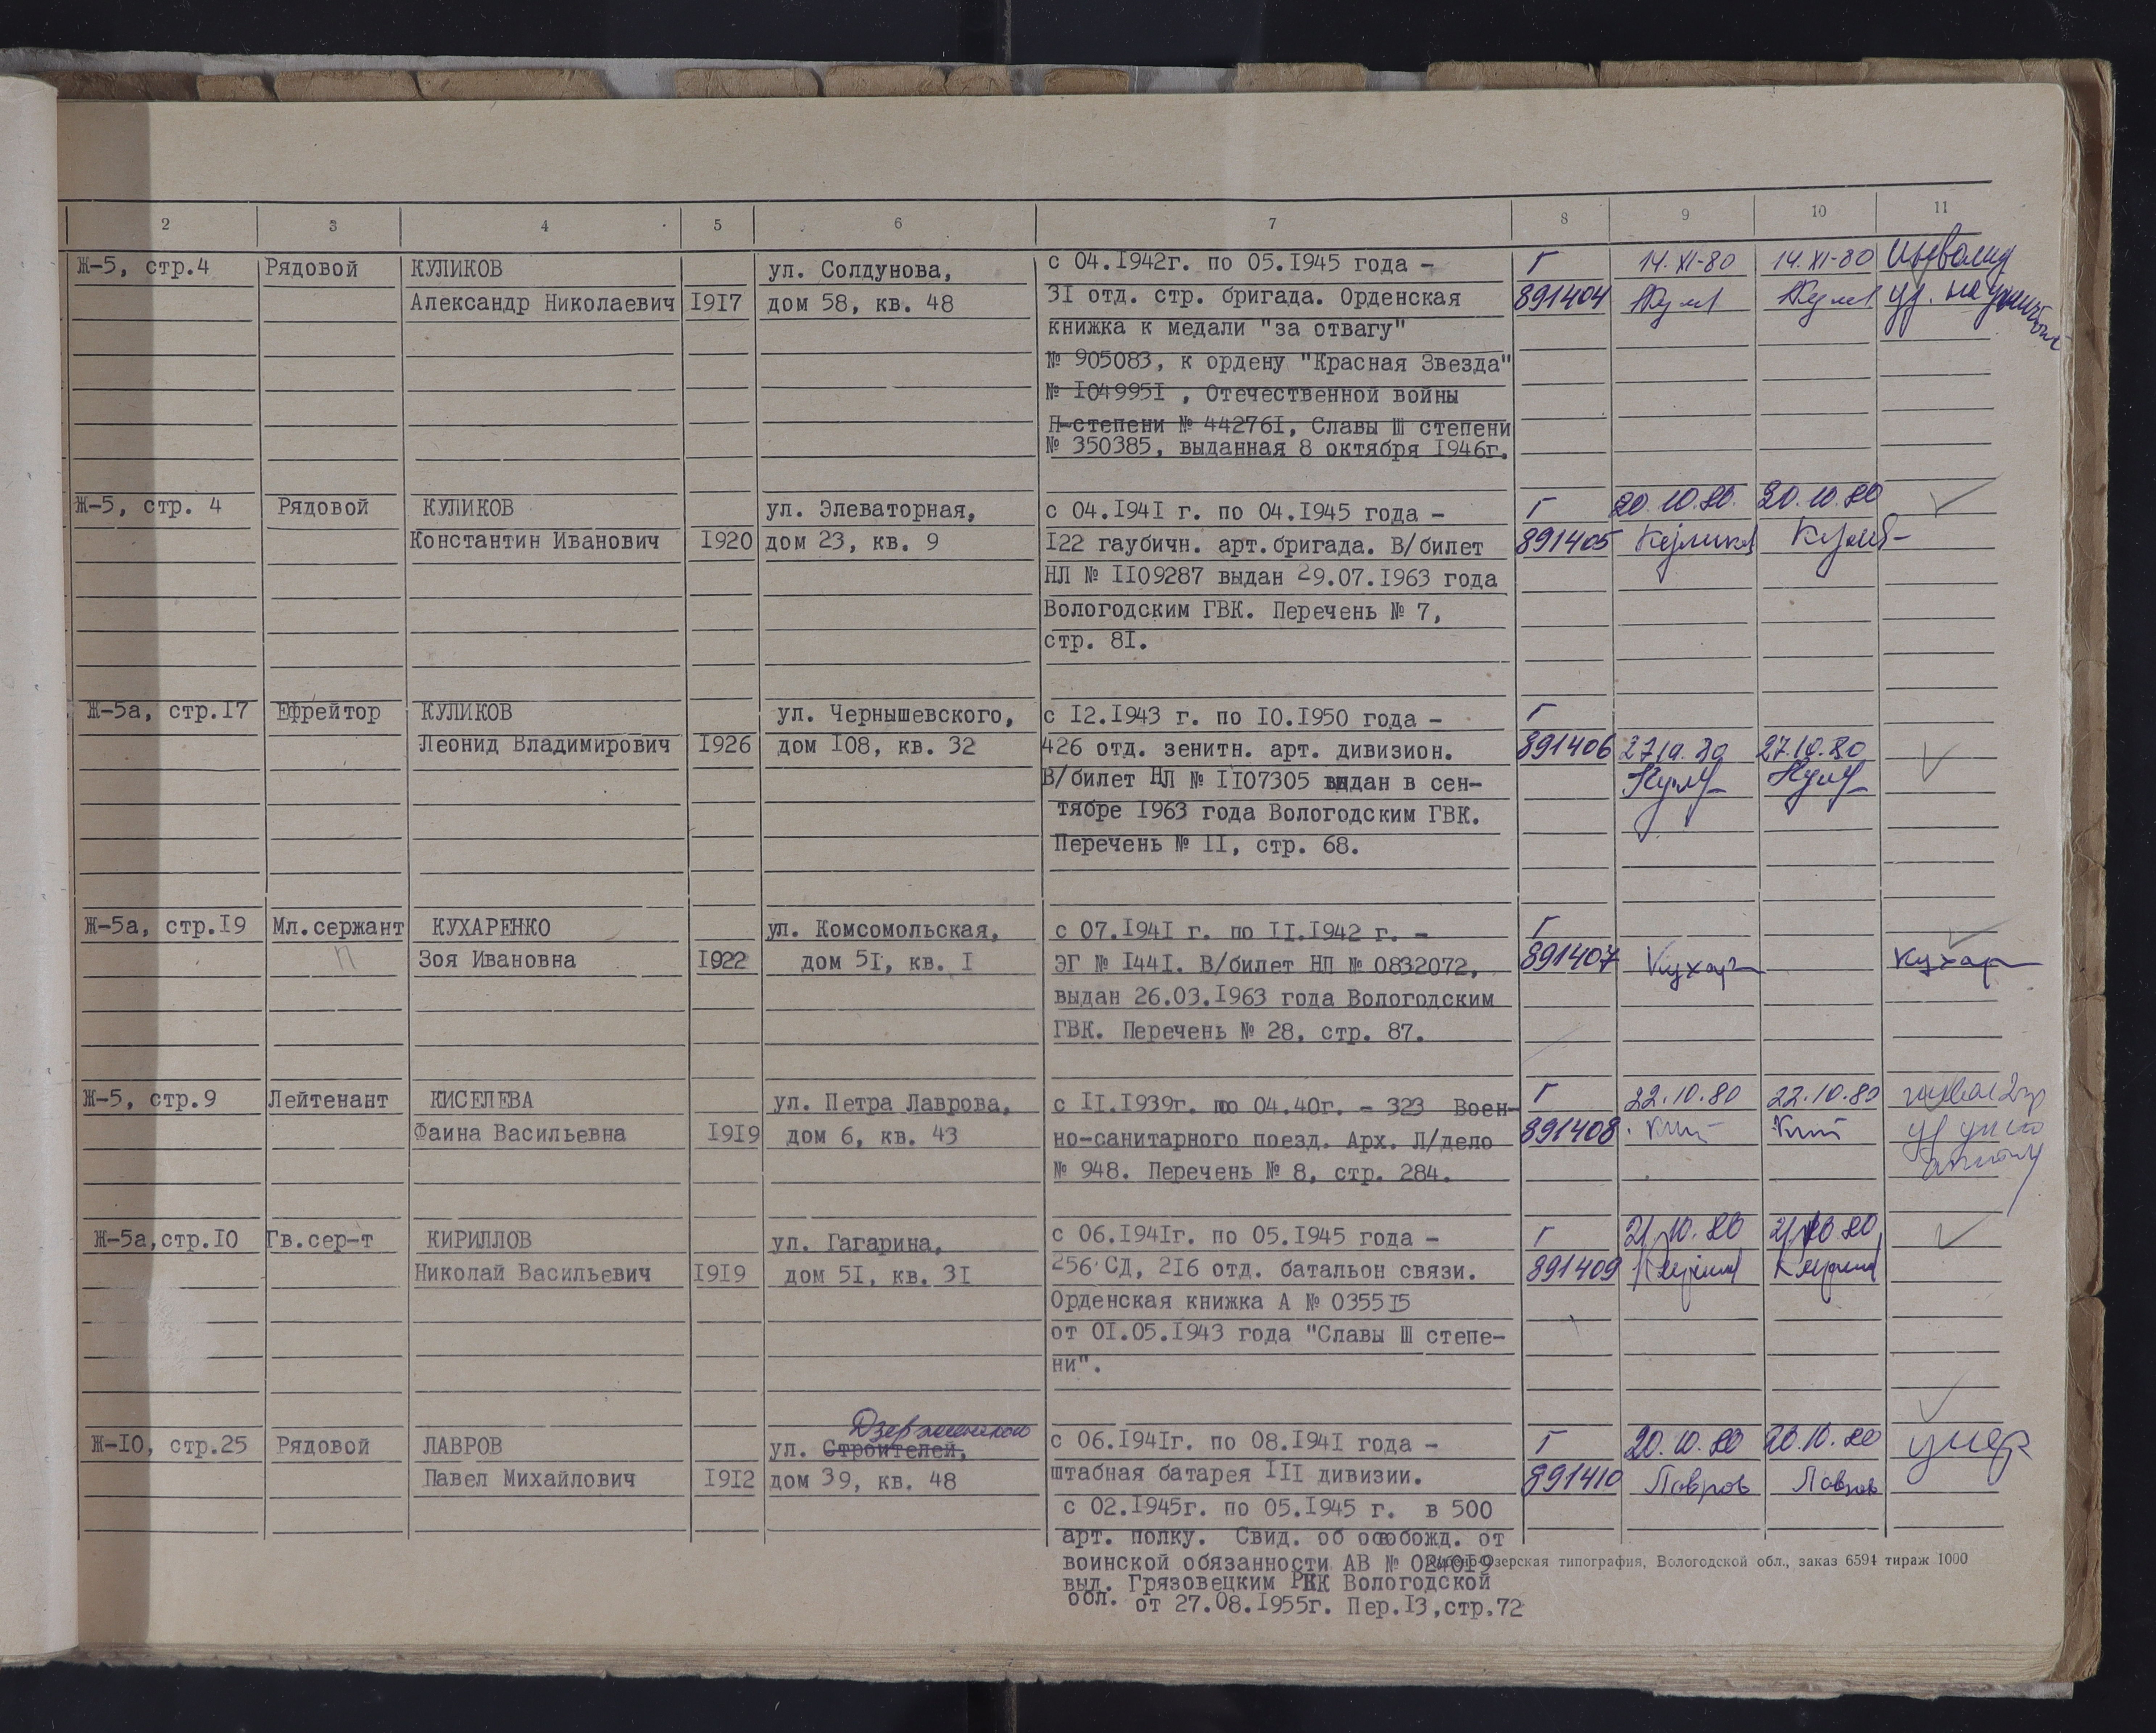 2 3 4 5 6 7 8 9 10 11
Ж-5, стр.4 Рядовой КУЛИКОВ ул. Солдунова, с 04.I942г. по 05.I945 года - Г 14.XI-80 14.XI-80 Инвалид
Александр Николаевич I9I7 дом 58, кв. 48 3I отд. стр. бригада. Орденская 891404 уд.
книжка к медали "за отвагу"
№ 905083, к ордену "Красная Звезда"
№ I04995I , Отечественной войны
П-степени № 44276I, Славы Ш степени
№ 350385, выданная 8 октября I946г.
Ж-5, стр. 4 Рядовой КУЛИКОВ ул. Элеваторная, с 04.I94I г. по 04.I945 года - Г 20.10.80. 20.10.80
Константин Иванович I920 дом 23, кв. 9 I22 гаубичн. арт.бригада. В/билет 891405 Куликов
НЛ № II09287 выдан 29.07.I963 года
Вологодским ГВК. Перечень № 7,
стр. 8I.
Ж-5а, стр.I7 Ефрейтор КУЛИКОВ ул. Чернышевского, с I2.I943 г. по I0.I950 года - Г
Леонид Владимирович I926 дом I08, кв. 32 426 отд. зенитн. арт. дивизион. 891406 27.10.80 27.10.80
В/билет НЛ № II07305 выдан в сен-
тябре I963 года Вологодским ГВК.
Перечень № II, стр. 68.
Ж-5а, стр.I9 Мл.сержант КУХАРЕНКО ул. Комсомольская, с 07.I94I г. по II.I942 г. - Г
Зоя Ивановна I922 дом 5I, кв. I ЭГ № I44I. В/билет НП № 0832072, 891407 Кухар Кухар
выдан 26.03.I963 года Вологодским
ГВК. Перечень № 28, стр. 87.
Ж-5, стр.9 Лейтенант КИСЕЛЕВА ул. Петра Лаврова, с II.I939г. по 04.40г. - 323 Воен- Г 22.10.80 22.10.80
Фаина Васильевна I9I9 дом 6, кв. 43 но-санитарного поезд. Арх. Л/дело 891408
№ 948. Перечень № 8, стр. 284.
Ж-5а,стр.I0 Гв.сер-т КИРИЛЛОВ ул. Гагарина, с 06.I94Iг. по 05.I945 года - Г 21.10.80 21.10.80
Николай Васильевич I9I9 дом 5I, кв. 3I 256 СД, 2I6 отд. батальон связи. 891409
Орденская книжка А № 0355I5
от 0I.05.I943 года "Славы Ш степе-
ни".
Дзержинского
Ж-I0, стр.25 Рядовой ЛАВРОВ ул. Строителей, с 06.I94Iг. по 08.I94I года - Г 20.10.80 20.10.80 умер
Павел Михайлович I9I2 дом 39, кв. 48 штабная батарея III дивизии. 891410 Лавров Лавров
с 02.I945г. по 05.I945 г. в 500
арт. полку. Свид. об освобожд. от
воинской обязанности АВ № 0240I9
озерская типография, Вологодской обл., заказ 6594 тираж 1000
выд. Грязовецким РВК Вологодской
обл. от 27.08.I955г. Пер.I3,стр.72